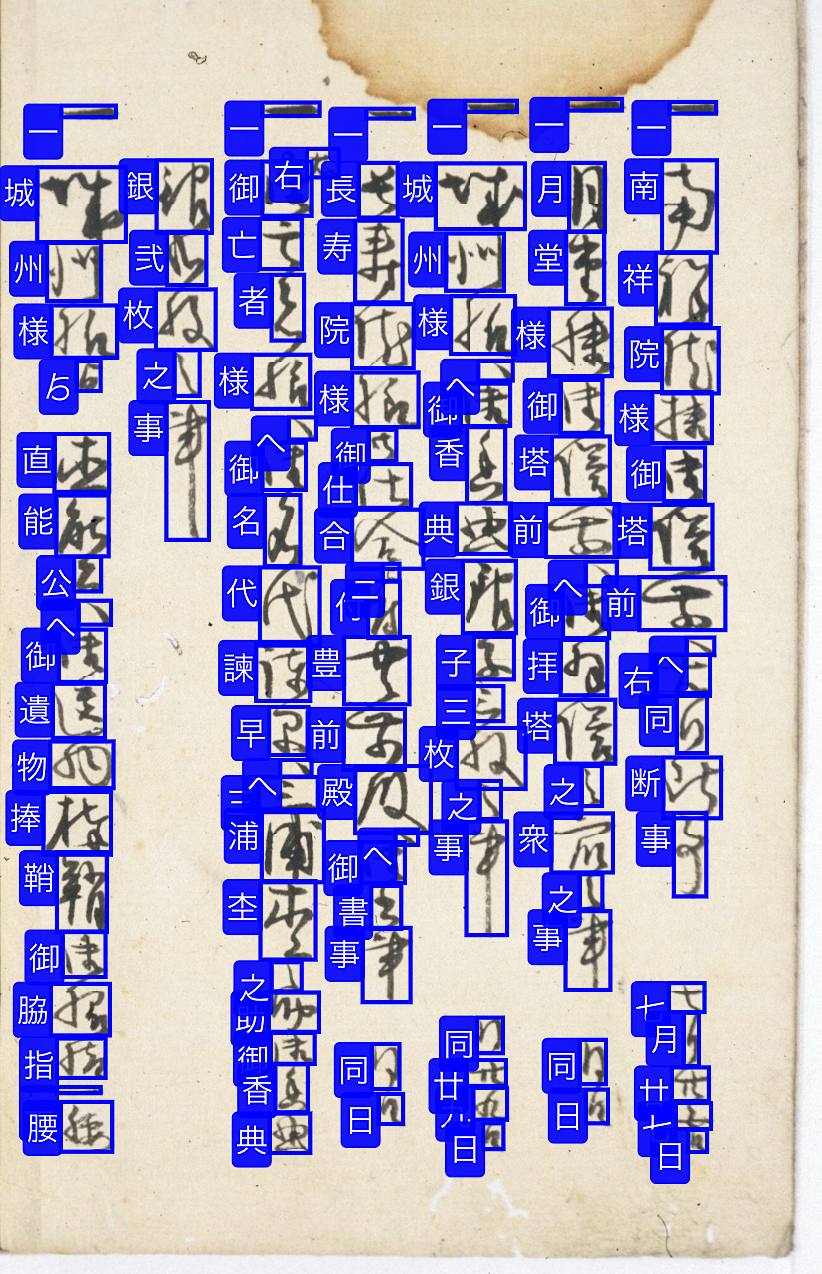 一南祥院様御塔前へ右同断事 七月廿七日
一月堂様御塔前へ御拝塔之衆之事 同日
一城州様へ御香典銀子三枚之事 同廿九日
一長寿院様御仕合二付豊前殿へ御書事 同日
一右御亡者様へ御名代諫早へ三浦杢之助御香典
銀弐枚之事
一城州様ゟ直能公へ御遺物捧鞘御脇指一腰